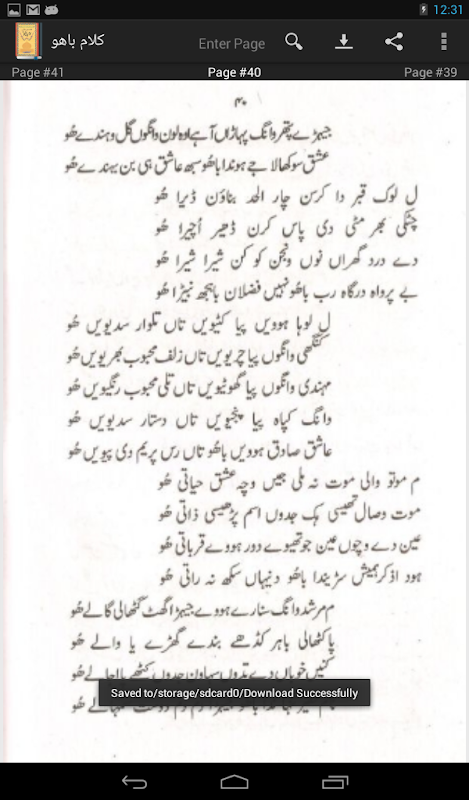 12:31
کلام باھو
Enter Page
Page #41
Page #40
Page #39
۴۰
جیہڑے پتھر وانگ پہاڑاں آہے اوہ لون وانگوں گل وہندے ھُو
عشق سوکھالا جے ہوندا باھُو سبھ عاشق ہی بن بہندے ھُو
ل لوک قبر دا کرسن چارا لحد بناؤن ڈیرا ھُو
چٹکی بھر مٹی دی پاسن کرن ڈھیر اُچیرا ھُو
دے درود گھراں نوں ونجن کوکن شیرا شیرا ھُو
بے پرواہ درگاہ رب باھُو نہیں فضلاں باہجھ نبیڑا ھُو
ل لوہا ہوویں پیا کٹیویں تاں تلوار سدیویں ھُو
کنگھی وانگوں پیا چریویں تاں زلف محبوب بھریویں ھُو
مہندی وانگوں پیا گھوٹیویں تاں تلی محبوب رنگیویں ھُو
وانگ کپاہ پیا پنجیویں تاں دستار سدیویں ھُو
عاشق صادق ہوویں باھُو تاں رس پریم دی پیویں ھُو
م موتو والی موت نہ ملی جیں وچہ عشق حیاتی ھُو
موت وصال تھیسی ہک جدوں اسم پڑھیسی ذاتی ھُو
عین دے وچوں عین جو تھیوے دور ہووے قرباتی ھُو
ہو دا ذکر ہمیش سڑیندا باھُو دنیہاں سکھ نہ راتی ھُو
م مرشد وانگ سنارے ہووے جیہڑا گھٹ کٹھالی گالے ھُو
پا کٹھالی باہر کڈھے بندے گھڑے یا والے ھُو
کنیں خوباں دے تدوں سہاون جدوں
Saved to/storage/sdcard0/Download Successfully